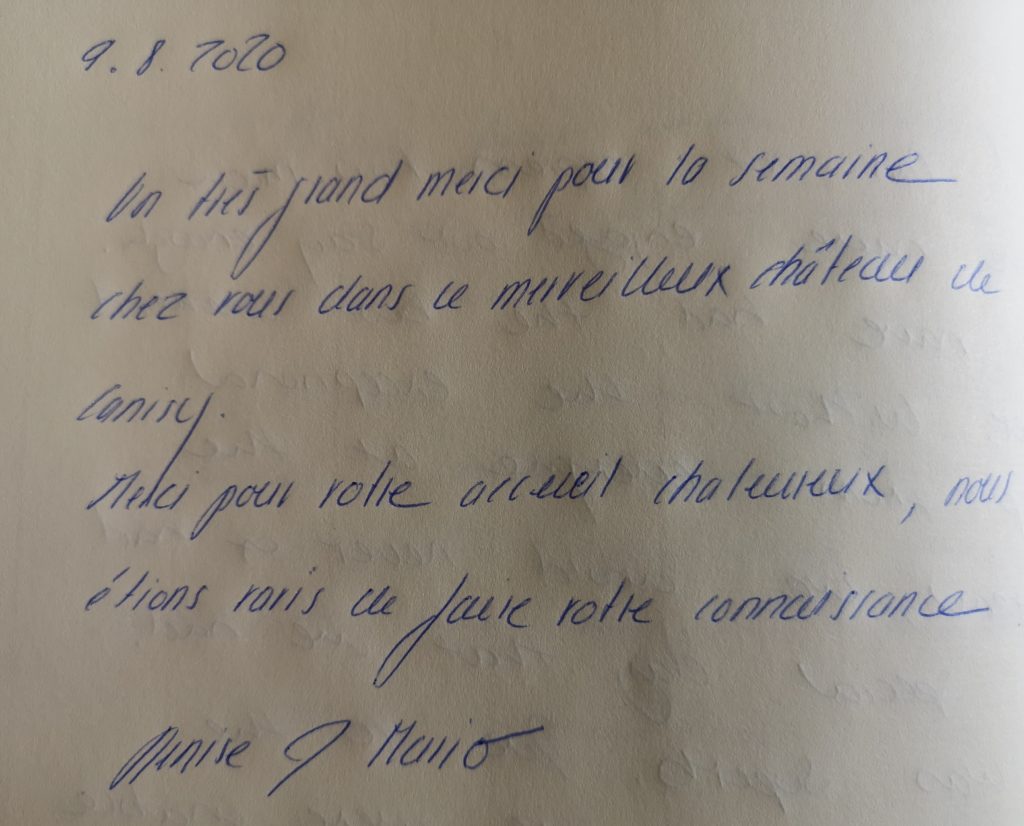 9.8.2020
Un très grand merci pour la semaine
chez vous dans ce merveilleux château de
Canisy.
Merci pour votre accueil chaleureux, nous
étions ravis de faire votre connaissance
Denise & Mario